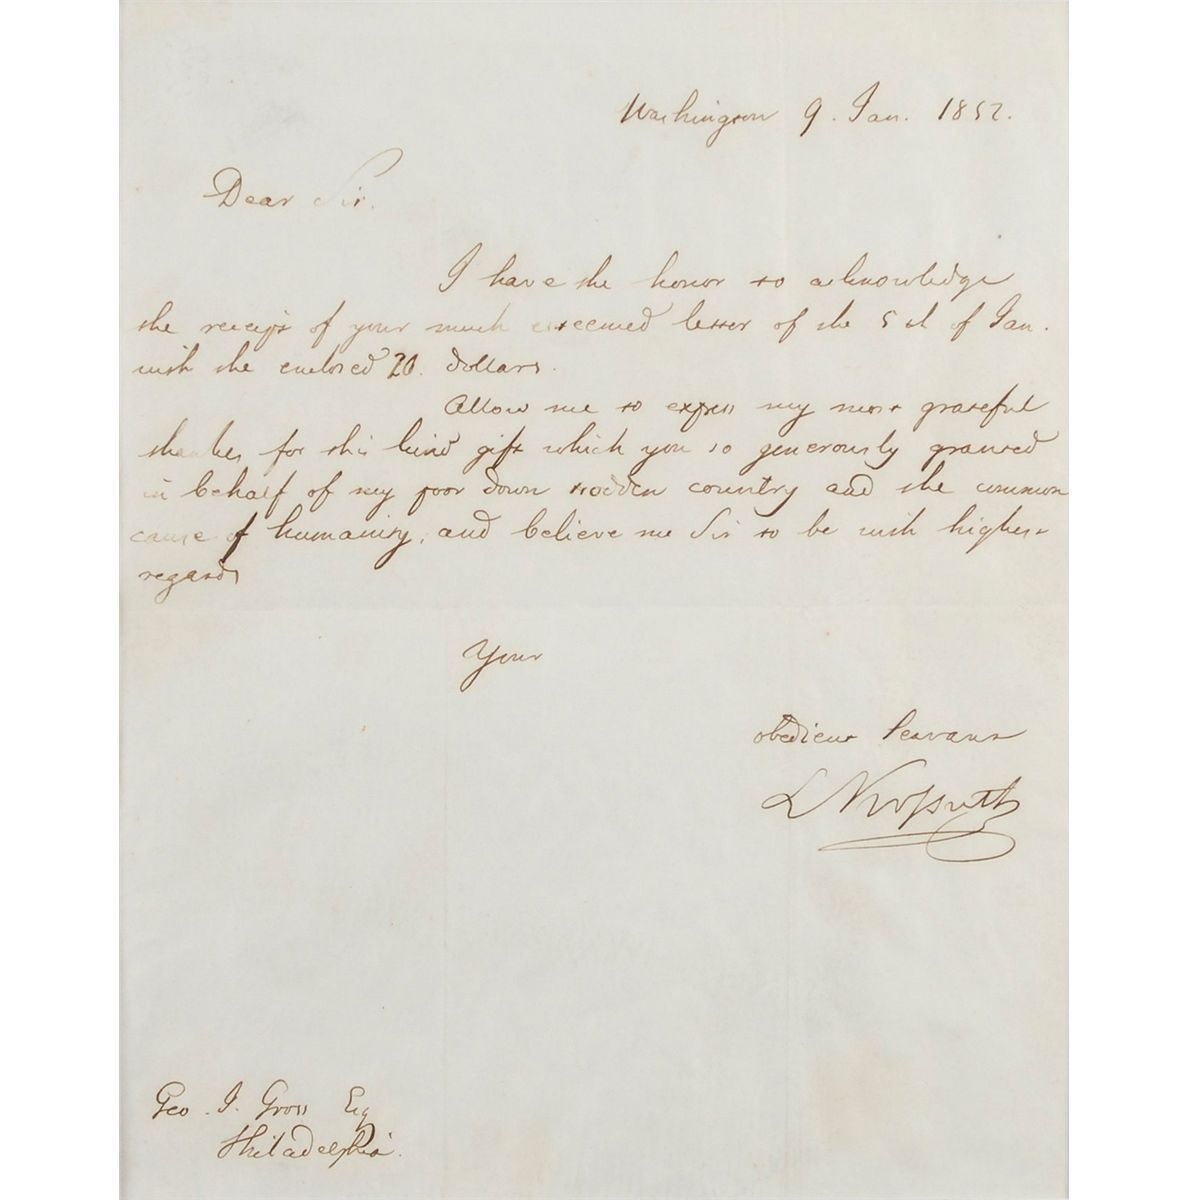 Washington 9. Jan. 1852.
Dear Sir.
I have the honor to acknowledge
the receipt of your much esteemed letter of the 5th of Jan.
with the enclosed 20. dollars.
Allow me to express my most grateful
thanks for this kind gift which you so generously granted
in behalf of my poor down trodden country and the common
cause of humanity, and believe me Sir to be with highest
regards
Your
obedient Servant
L Kossuth
Geo. J. Gross Esq
Philadelphia.